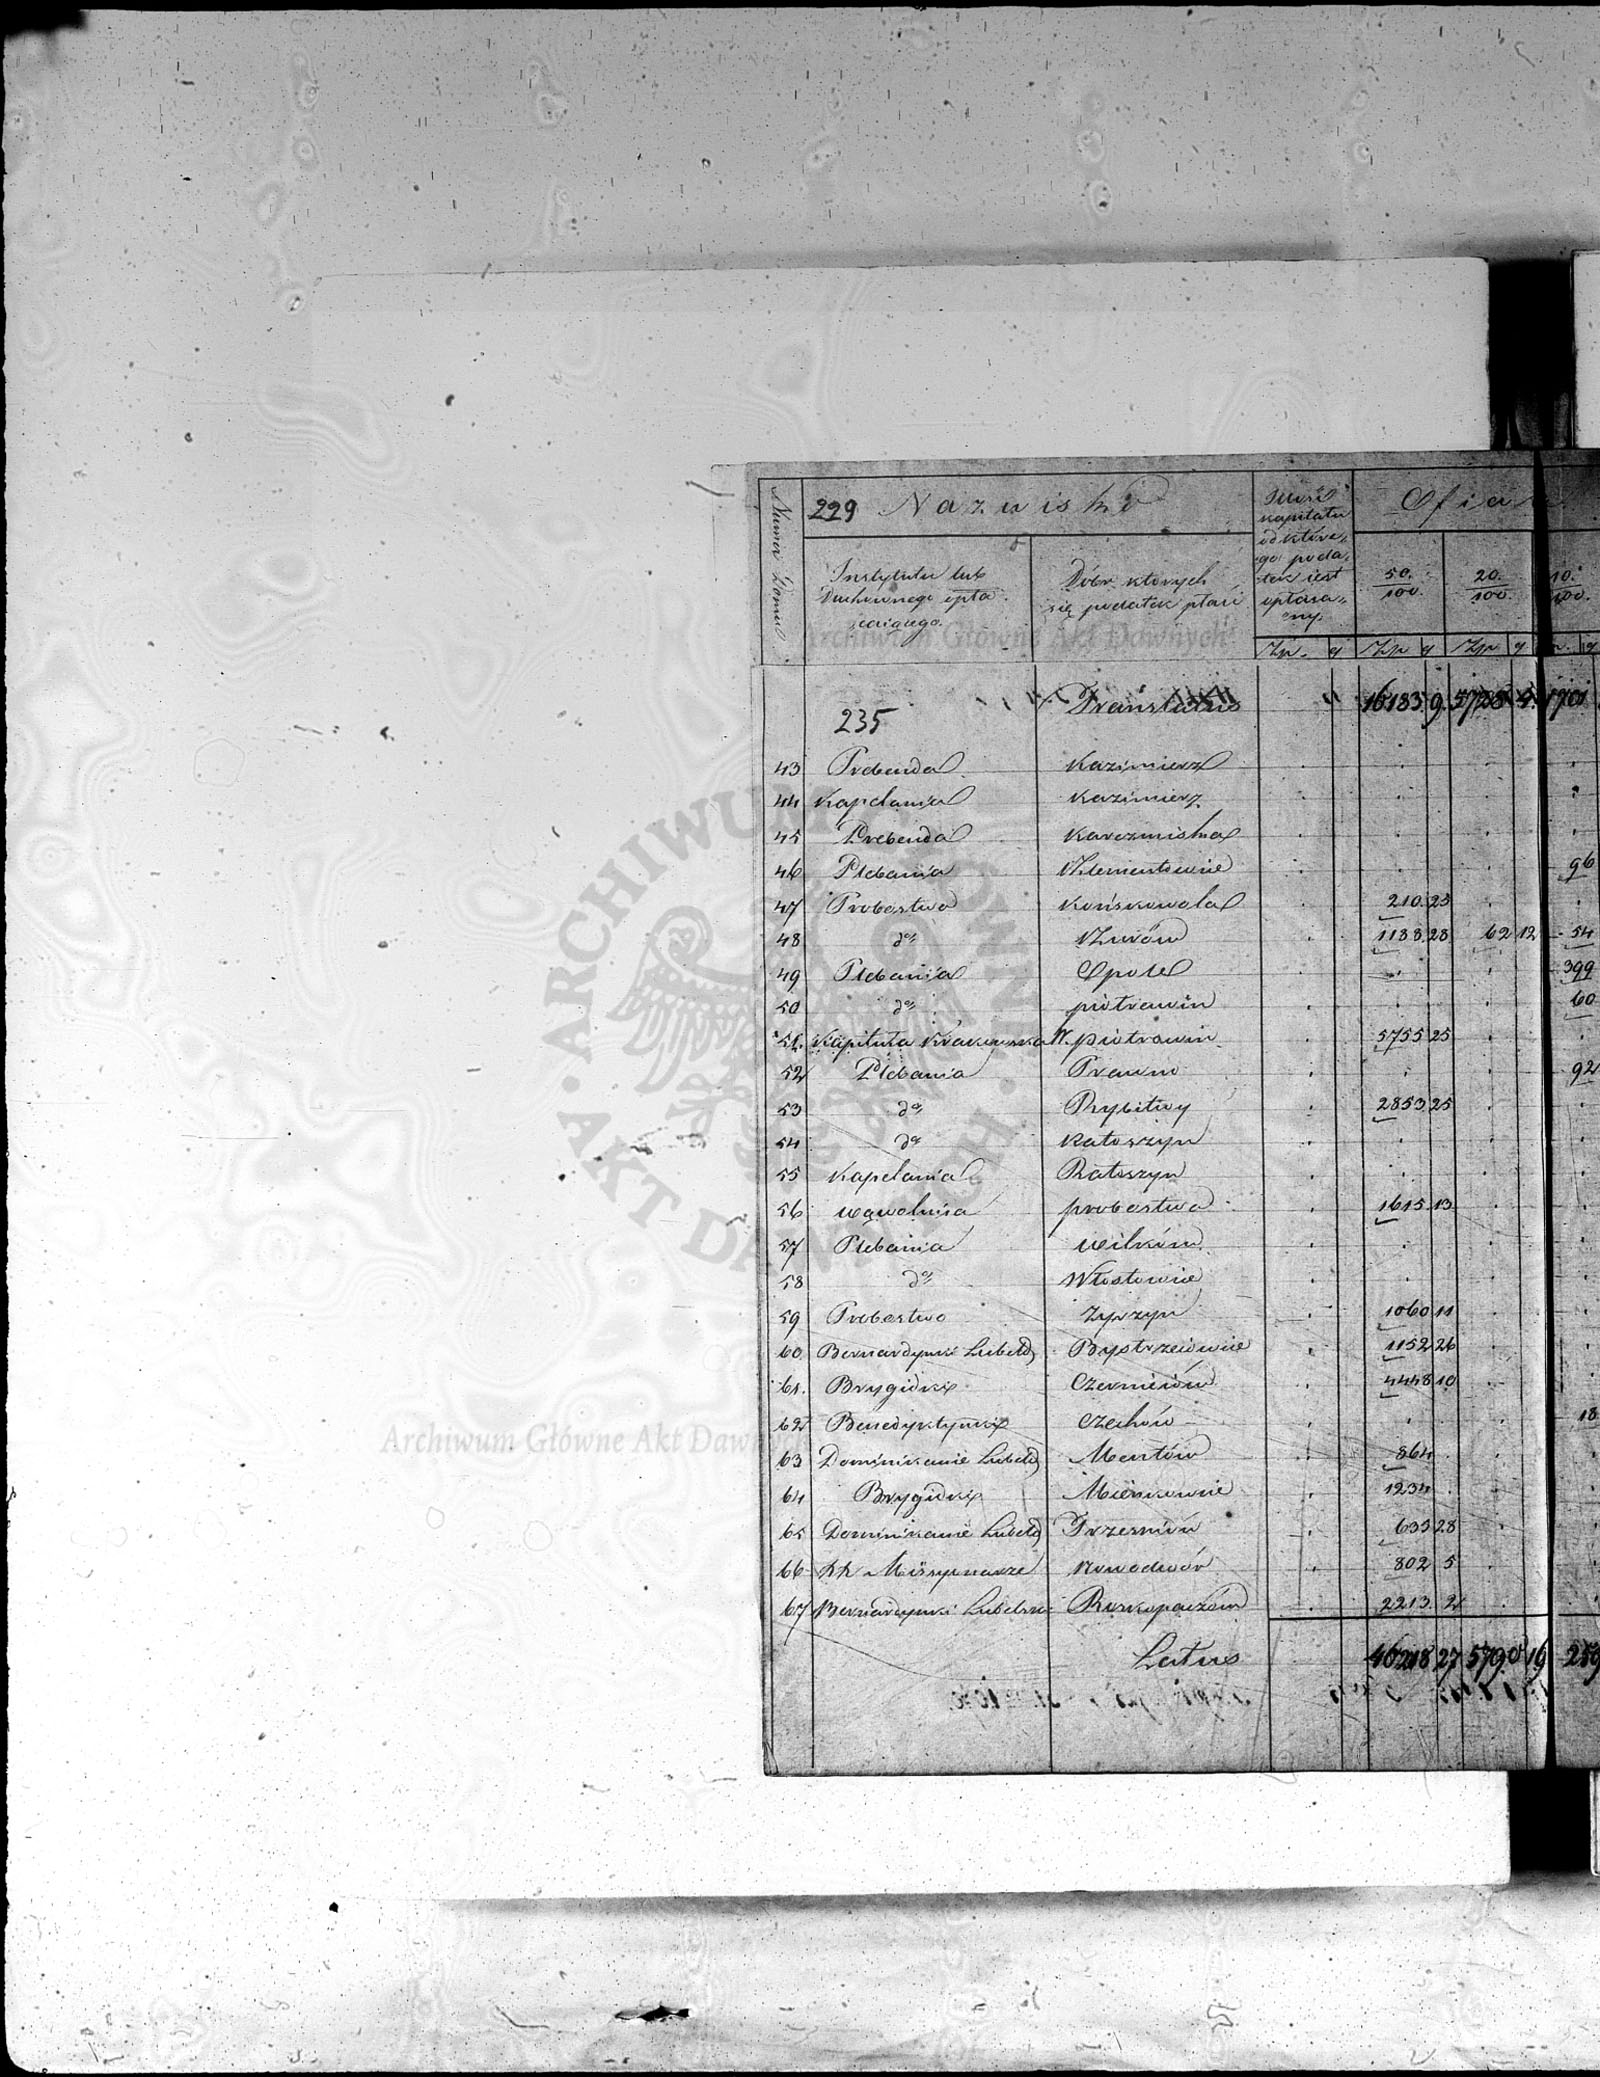 Numer Domu
229 Nazwisko
Ofiara
Instytutu lub
Duchownego opła
cającego.
Dóbr których
się podatek płaci
Ilość
kapitału
od które-
go poda-
tek jest
opłaca-
ny.
50./100.
20./100.
10./100.
Złp. g Złp g Złp g
Translatus 16183 9. 5728 4. 1701
235
43 Prebenda Kazimierz
44 Kapelania Kazimierz
45 Prebenda Karczmiska
46 Plebania Klementowice 96
47 Probostwo Końskowola 210 23
48 do Kurów 1188 28 62 12 54
49 Plebania Opole 399
50 do piotrawin 60
51. Kapituła Krakowska W. piotrawin 5755 25
52 Plebania Prawno 92
53 do Rybitwy 2853 25
54 do Ratoszyn
55 Kapelania Ratoszyn
56 wąwolnica probostwo 1615 13
57 Plebania wilków
58 do Włostowice
59 Probostwo Żyrzyn 1060 11
60 Bernardynki Lubel Bystrzeiowice 1152 26
61. Brygidki Czerniiów 4448 10
62 Benedyktynki Czechów 18
63 Dominikanie Lubel Mentów 864
64 Brygidki 1234
65 Dominikanie Lubel Trzesniów 635 28
66 kk Missyonarze Nowodwór 802 5
67 Bernardynki Lubelski Rurkopaczów 2213 2
Latus 40218 27 5790 16 259
ARCHIWUM GŁÓWNE AKT DAWNYCH
Archiwum Główne Akt Dawnych
Archiwum Główne Akt Dawnych